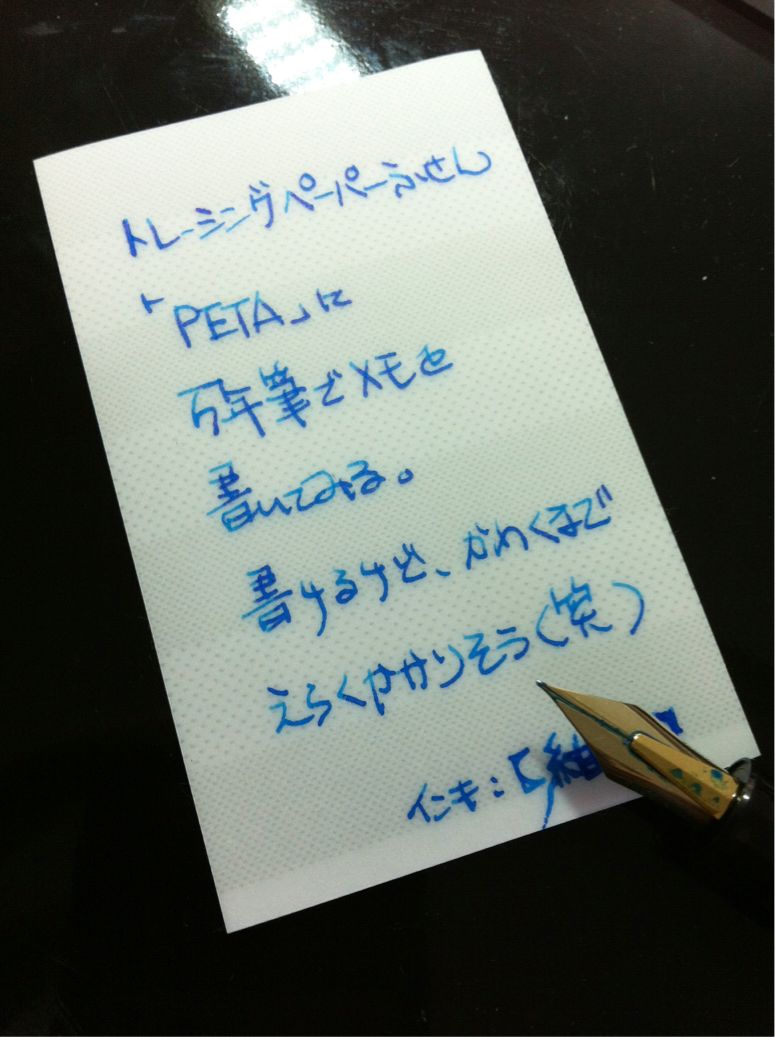 トレーシングペーパーふせん
「PETA」に
万年筆でメモを
書いてみる。
書けるけど、かわくまで
えらくかかりそう(笑)
インキ:【紺】